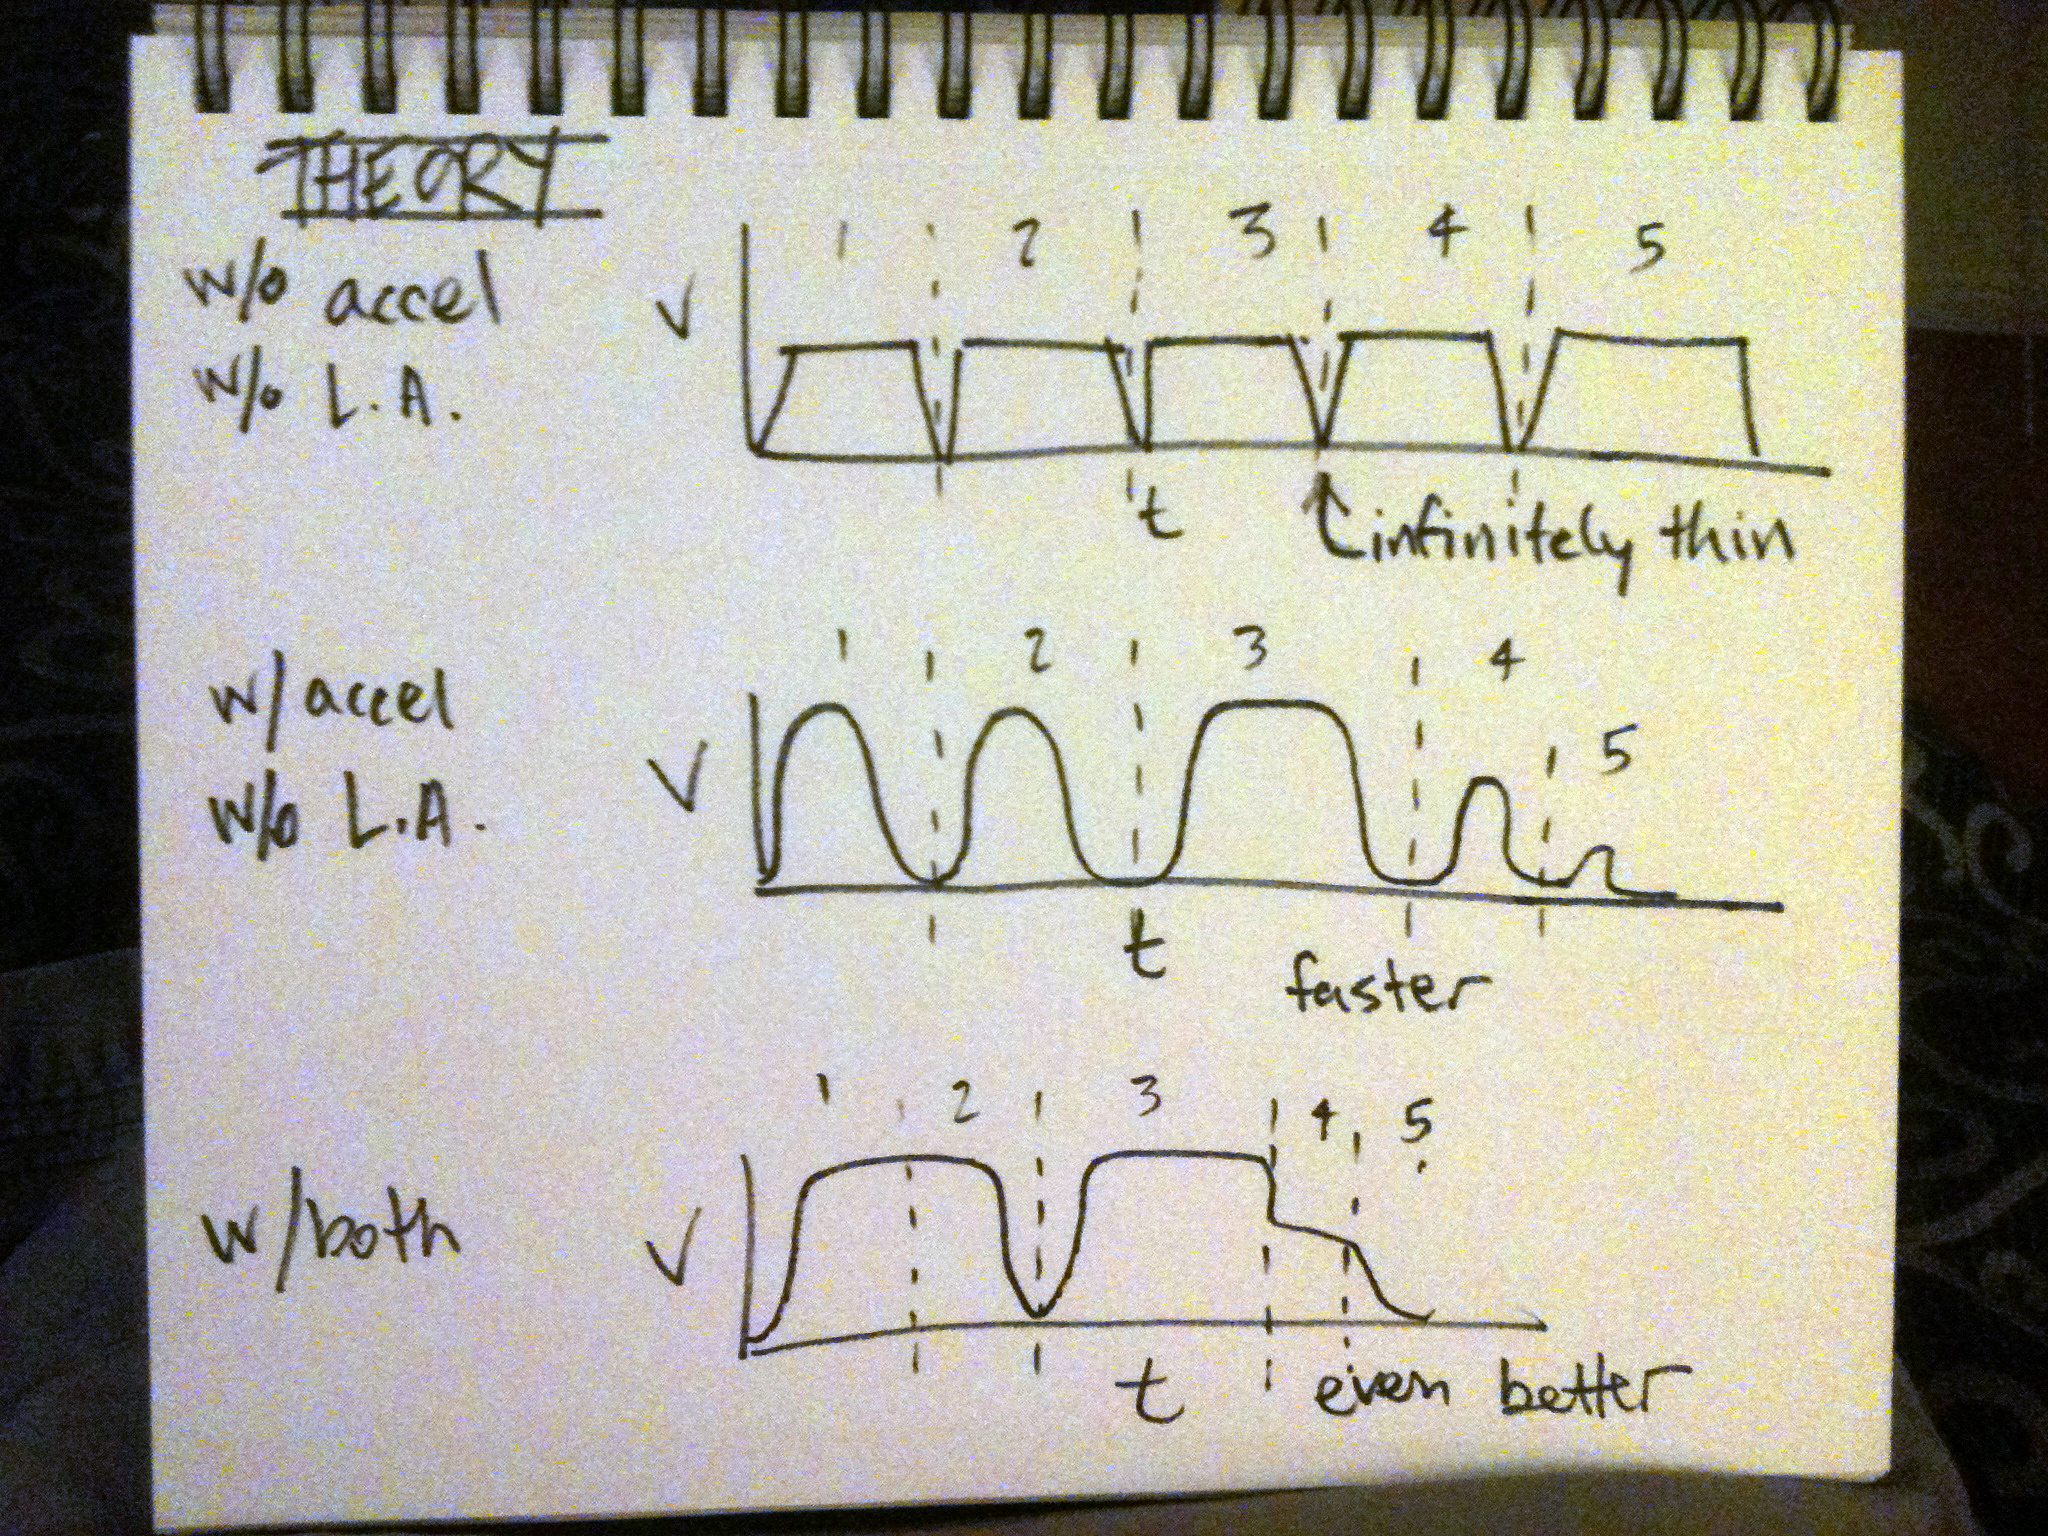 THEORY
w/o accel
w/o L.A.
1 2 3 4 5
V
t
infinitely thin
w/ accel
w/o L.A.
1 2 3 4 5
V
t
faster
w/both
1 2 3 4 5
V
t
even better